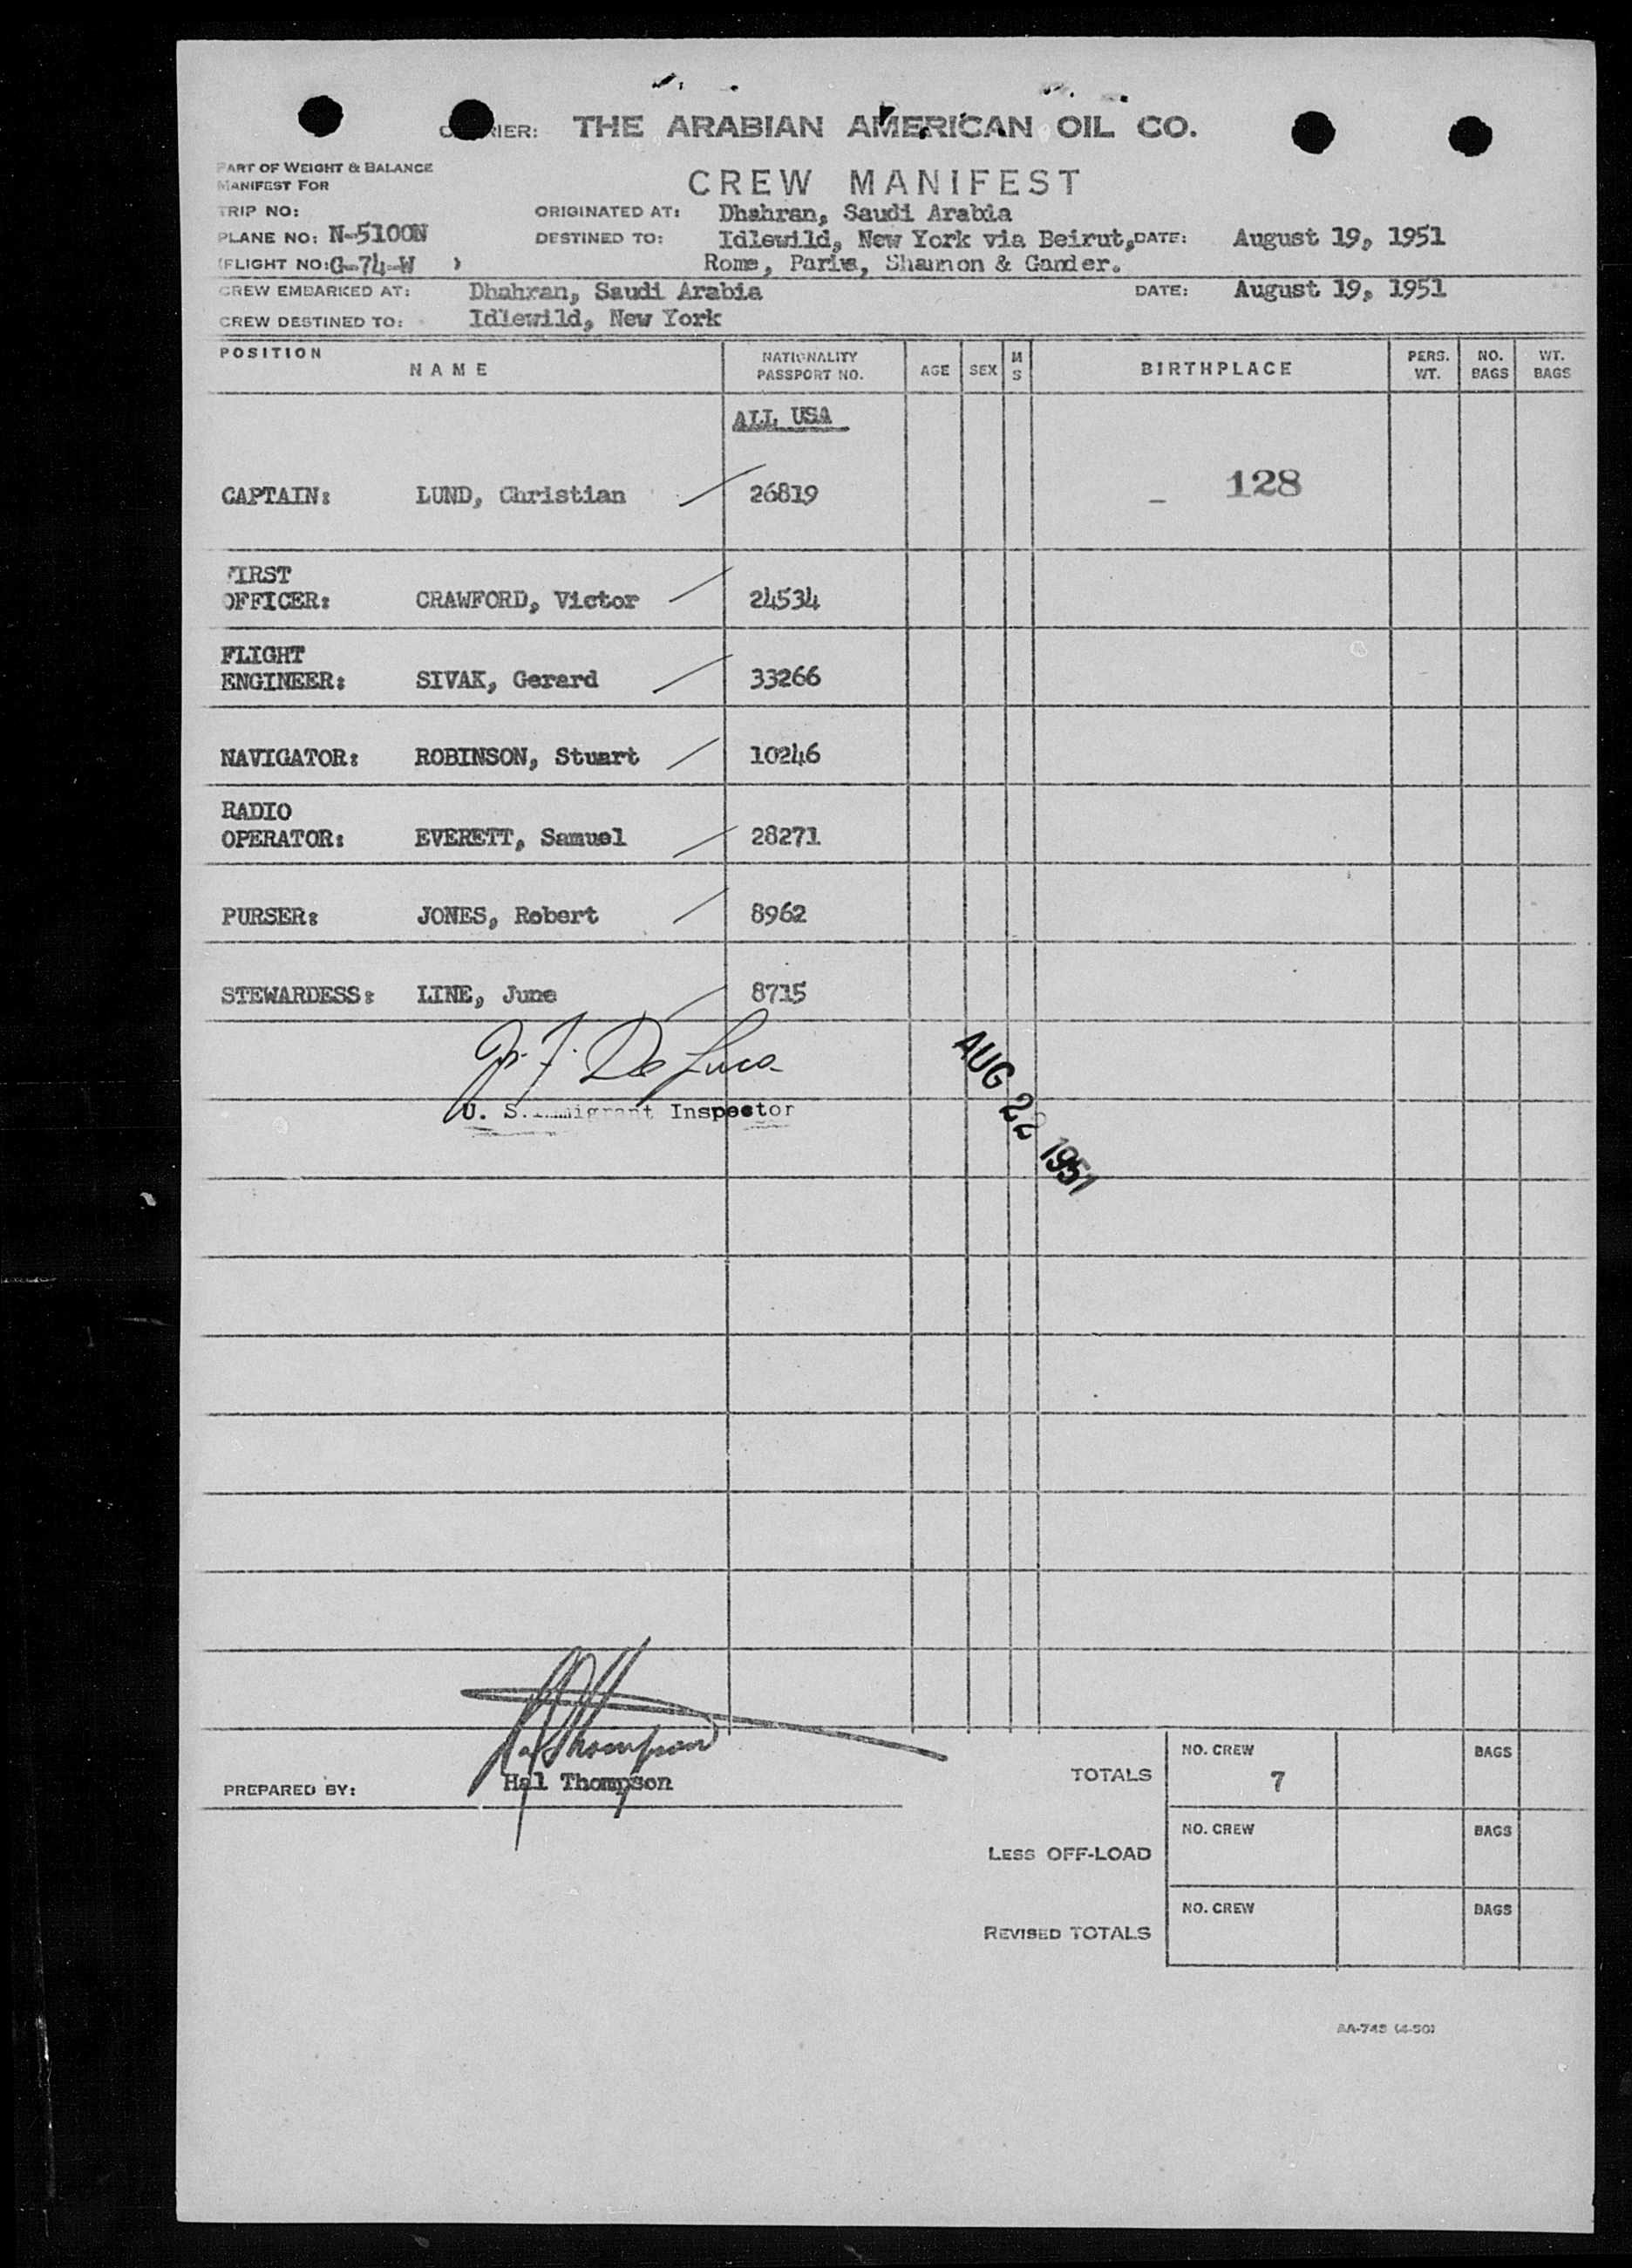 CARRIER: THE ARABIAN AMERICAN OIL CO.
PART OF WEIGHT & BALANCE
MANIFEST FOR
CREW MANIFEST
TRIP NO:
ORIGINATED AT: Dhahran, Saudi Arabia
PLANE NO: N-5100N
DESTINED TO: Idlewild, New York via Beirut, DATE: August 19, 1951
(FLIGHT NO: G-74-W )
Rome, Paris, Shannon & Gander.
CREW EMBARKED AT: Dhahran, Saudi Arabia DATE: August 19, 1951
CREW DESTINED TO: Idlewild, New York
POSITION NAME NATIONALITY PASSPORT NO. AGE SEX M S BIRTHPLACE PERS. WT. NO. BAGS WT. BAGS
ALL USA
128
CAPTAIN: LUND, Christian 26819
FIRST
OFFICER: CRAWFORD, Victor 24534
FLIGHT
ENGINEER: SIVAK, Gerard 33266
NAVIGATOR: ROBINSON, Stuart 10246
RADIO
OPERATOR: EVERETT, Samuel 28271
PURSER: JONES, Robert 8962
STEWARDESS: LINE, June 8715
De Luca
U. S. Immigrant Inspector
AUG 22 1951
Hal Thompson
PREPARED BY: Hal Thompson
TOTALS NO. CREW 7 BAGS
LESS OFF-LOAD NO. CREW BAGS
REVISED TOTALS NO. CREW BAGS
AA-745 (4-50)